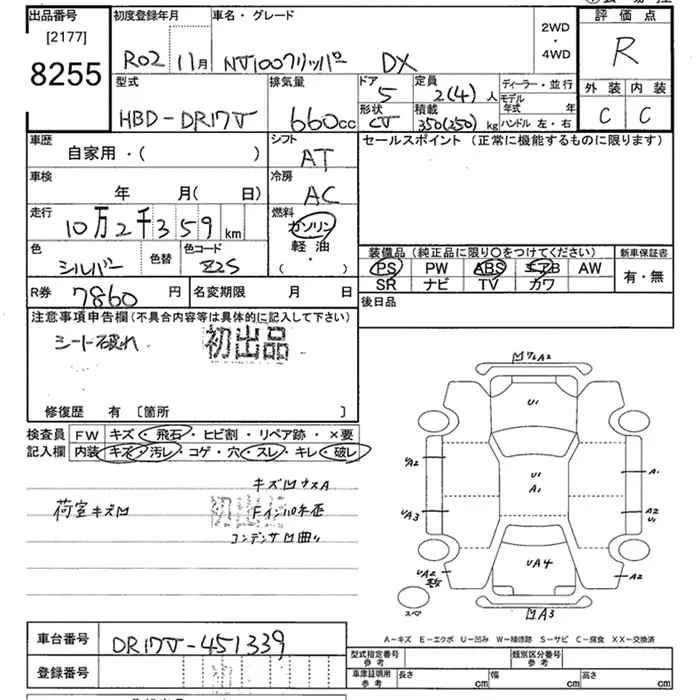 出品番号 初度登録年月 車名・グレード 2WD ・ 4WD 評価点
[2177]
8255
R02 11月 NV100クリッパー DX
R
型式 排気量 ドア 5 定員 2(4)人 ディーラー・並行
外装 内装
HBD-DR17V 660cc 形状 CV 積載 350(250)kg モデル年式 年
ハンドル 左・右
C C
車歴 自家用・( )
シフト AT
セールスポイント(正常に機能するものに限ります)
車検 年 月( 日)
冷房 AC
走行 10万2千359km
燃料 ガソリン 軽油 ・ ( )
色 シルバー 色替 色コード Z2S
装備品(純正品に限り○をつけてください) 新車保証書
PS PW ABS エアB AW 有・無
SR ナビ TV カワ
R券 7860円 名変期限 月 日
後日品
注意事項申告欄(不具合内容等は具体的に記入して下さい)
シート破れ 初出品
修復歴 有 [箇所 ]
検査員 FW キズ・飛石・ヒビ割・リペア跡・×要
記入欄 内装 キズ・汚レ・コゲ・穴・スレ・キレ・破レ
荷室キズ凹
初出品
コンデンサ凹曲り
U1
U1
A1
UA4
UA2
UA3
UA2
A1
A2
U1
A2
凹A3
スペア
A-キズ E-エクボ U-凹み W-補修跡 S-サビ C-腐食 XX-交換済
車台番号 DR17V-451339
登録番号
型式指定番号 参考 類別区分番号 参考
車庫証明用 参考 長さ cm 幅 cm 高さ cm